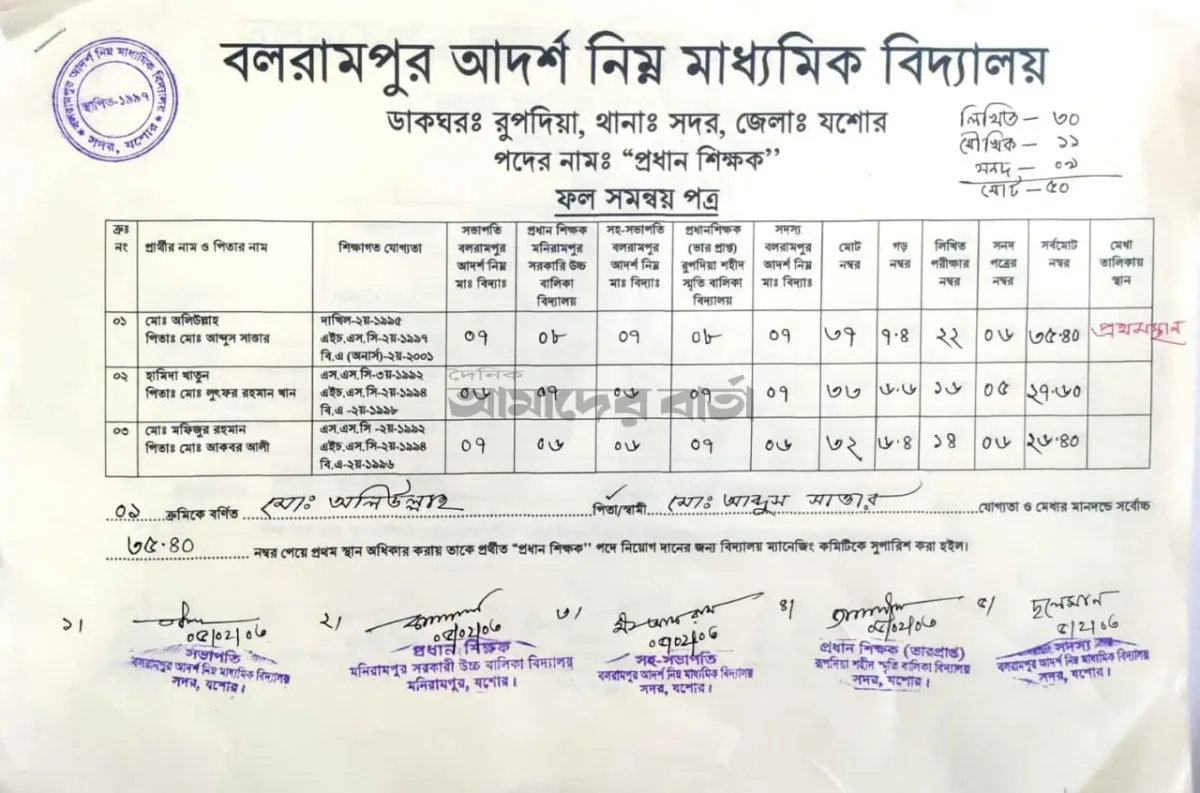 বলরামপুর আদর্শ নিম্ন মাধ্যমিক বিদ্যালয়
ডাকঘরঃ রুপদিয়া, থানাঃ সদর, জেলাঃ যশোর
পদের নামঃ “প্রধান শিক্ষক”
ফল সমন্বয় পত্র
বলরামপুর আদর্শ নিম্ন মাধ্যমিক বিদ্যালয়
স্থাপিত-১৯৯৭
সদর, যশোর
লিখিত - ৩০
মৌখিক - ১১
সনদ - ০৯
মোট - ৫০
ক্রঃ নং
প্রার্থীর নাম ও পিতার নাম
শিক্ষাগত যোগ্যতা
সভাপতি বলরামপুর আদর্শ নিম্ন মাঃ বিদ্যাঃ
প্রধান শিক্ষক মনিরামপুর সরকারি উচ্চ বালিকা বিদ্যালয়
সহ-সভাপতি বলরামপুর আদর্শ নিম্ন মাঃ বিদ্যাঃ
প্রধানশিক্ষক (ভার প্রাপ্ত) রুপদিয়া শহীদ স্মৃতি বালিকা বিদ্যালয়
সদস্য বলরামপুর আদর্শ নিম্ন মাঃ বিদ্যাঃ
মোট নম্বর
গড় নম্বর
লিখিত পরীক্ষার নম্বর
সনদ পত্রের নম্বর
সর্বমোট নম্বর
মেধা তালিকায় স্থান
০১ মোঃ অলিউল্লাহ দাখিল-২য়-১৯৯৫
পিতাঃ মোঃ আব্দুস সাত্তার এইচ.এস.সি-২য়-১৯৯৭ ০৭ ০৮ ০৭ ০৮ ০৭ ৩৭ ৭.৪ ২২ ০৬ ৩৫.৪০ প্রথম স্থান
বি.এ (অনার্স)-২য়-২০০১
০২ হামিদা খাতুন এস.এস.সি-৩য়-১৯৯২
পিতাঃ মোঃ লুৎফর রহমান খান এইচ.এস.সি-২য়-১৯৯৪ ০৬ ০৭ ০৬ ০৭ ০৭ ৩৩ ৬.৬ ১৬ ০৫ ২৭.৬০
বি.এ -২য়-১৯৯৮
০৩ মোঃ মফিজুর রহমান এস.এস.সি -২য়-১৯৯২
পিতাঃ মোঃ আকবর আলী এইচ.এস.সি-২য়-১৯৯৪ ০৭ ০৬ ০৬ ০৭ ০৬ ৩২ ৬.৪ ১৪ ০৬ ২৬.৪০
বি.এ-২য়-১৯৯৬
দৈনিক
আমাদের বার্তা
০১ ক্রমিকে বর্ণিত মোঃ অলিউল্লাহ পিতা/স্বামী মোঃ আব্দুস সাত্তার যোগ্যতা ও মেধার মানদন্ডে সর্বোচ্চ
৩৫.৪০ নম্বর পেয়ে প্রথম স্থান অধিকার করায় তাকে প্রার্থীত “প্রধান শিক্ষক” পদে নিয়োগ দানের জন্য বিদ্যালয় ম্যানেজিং কমিটিকে সুপারিশ করা হইল।
১। ২। ৩। ৪। ৫।
০৫/০২/০৬ ০৫/০২/০৬ ০৫/০২/০৬ ০৫/০২/০৬ ৫/২/০৬
সভাপতি
বলরামপুর আদর্শ নিম্ন মাধ্যমিক বিদ্যালয়
সদর, যশোর।
প্রধান শিক্ষক
মনিরামপুর সরকারী উচ্চ বালিকা বিদ্যালয়
মনিরামপুর, যশোর।
সহ-সভাপতি
বলরামপুর আদর্শ নিম্ন মাধ্যমিক বিদ্যালয়
সদর, যশোর।
প্রধান শিক্ষক (ভারপ্রাপ্ত)
রূপদিয়া শহীদ স্মৃতি বালিকা বিদ্যালয়
সদর, যশোর।
সদস্য
বলরামপুর আদর্শ নিম্ন মাধ্যমিক বিদ্যালয়
সদর, যশোর।